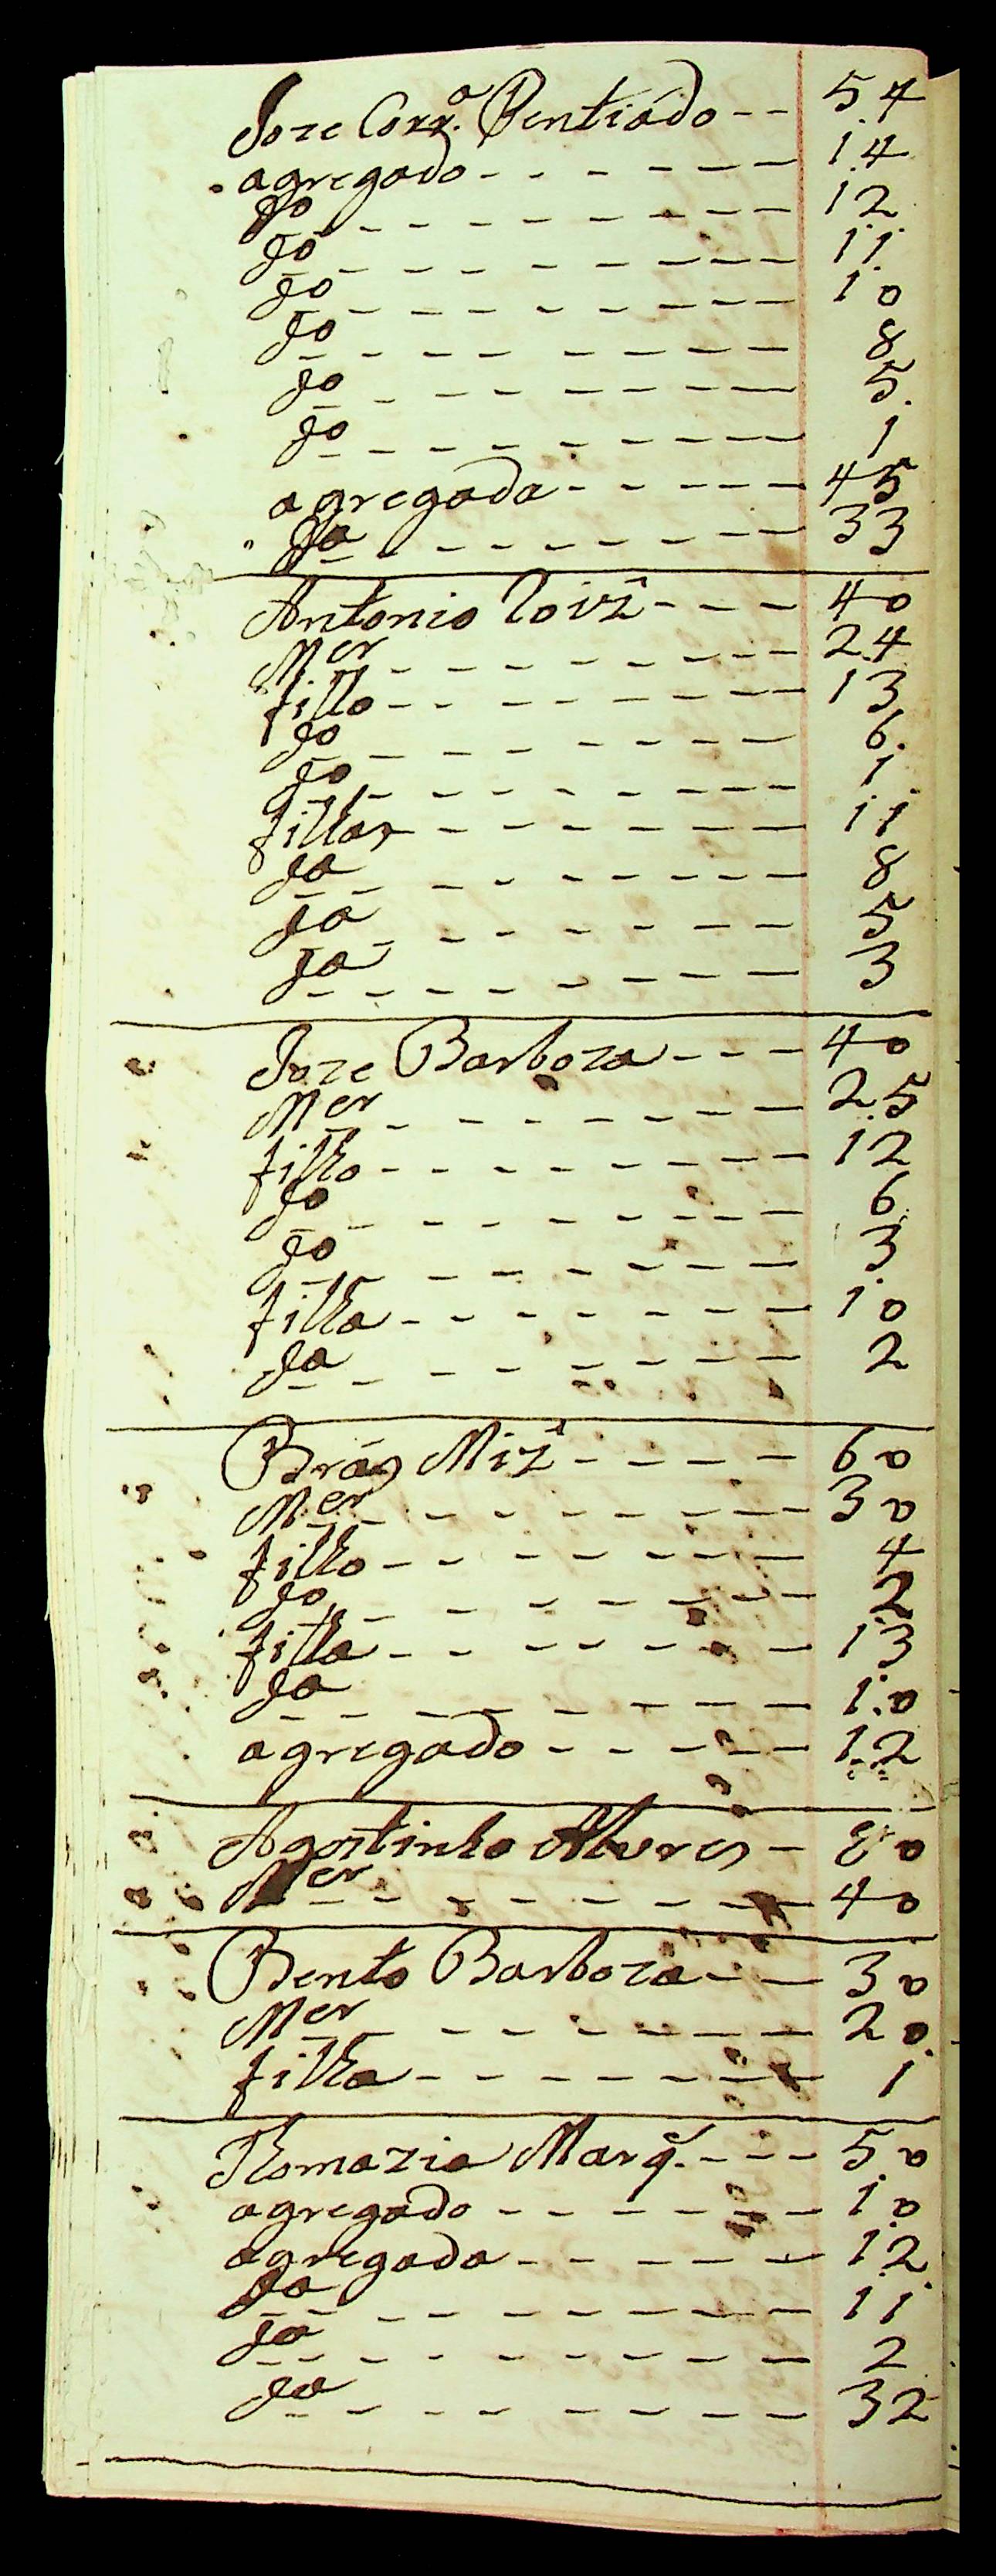 Joze Corr.ª Pentiádo -- 54
agregado - - - - - - 14
do - - - - - - - - - 12
do - - - - - - - - - 11
do - - - - - - - - - 10
do - - - - - - - - - 8
do - - - - - - - - - 5
do - - - - - - - - - 1
agregada - - - - - 45
da - - - - - - - - 33
Antonio - - - 40
M.er - - - - - - - - 24
filho - - - - - - - - 13
do - - - - - - - - 6
do - - - - - - - - 1
filhas - - - - - - - 11
da - - - - - - - - 8
da - - - - - - - - 5
da - - - - - - - - 3
Joze Barboza - - - 40
M.er - - - - - - - - 25
filho - - - - - - - - 12
do - - - - - - - - 6
do - - - - - - - - 3
filha - - - - - - - - 10
da - - - - - - - - 2
Brás Miz̃ - - - - 60
M.er - - - - - - - - 30
filho - - - - - - - - 4
do - - - - - - - - 2
filha - - - - - - - - 13
da - - - - - - - - 10
agregado - - - - - 12
Agostinho Alvres - 80
M.er - - - - - - - - 40
Bento Barboza - - 30
M.er - - - - - - - - 20
filha - - - - - - - - 1
Thomazia Marq.̃ - - - 50
agregado - - - - - - 10
agregada - - - - - - 12
da - - - - - - - - 11
da - - - - - - - - 2
da - - - - - - - - 32